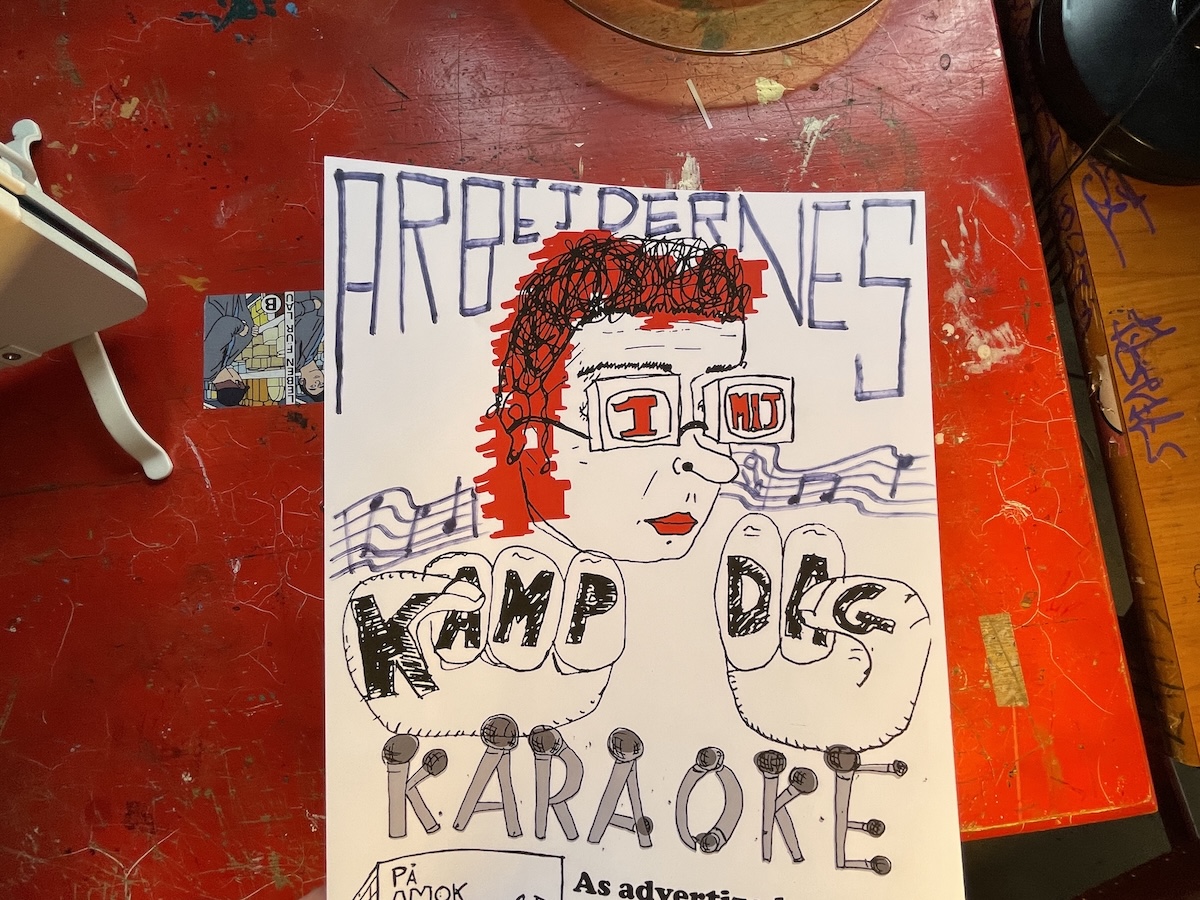 ARBEJDERNES
1 MAJ
KAMP DAG
KARAOKE
PÅ
AMOK
As advertized
LEBEN FUR LAU
B